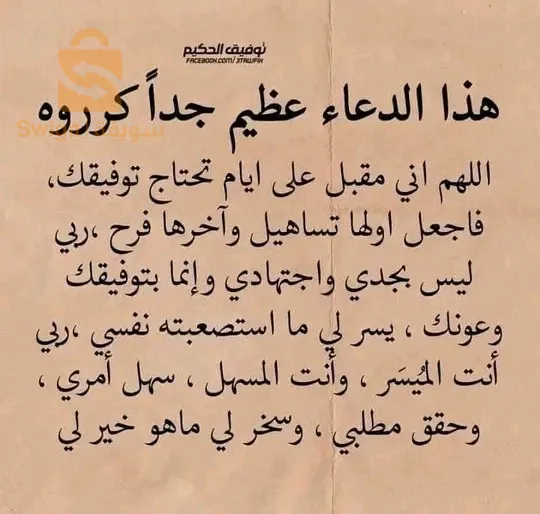 توفيق الحكيم
FACEBOOK.COM/3TAWFIK
هذا الدعاء عظيم جداً كرروه
اللهم اني مقبل على ايام تحتاج توفيقك،
فاجعل اولها تساهيل وآخرها فرح ،ربي
ليس بجدي واجتهادي وإنما بتوفيقك
وعونك ، يسر لي ما استصعبته نفسي ،ربي
أنت المُيسَر ، وأنت المسهل ، سهل أمري ،
وحقق مطلبي ، وسخر لي ماهو خير لي